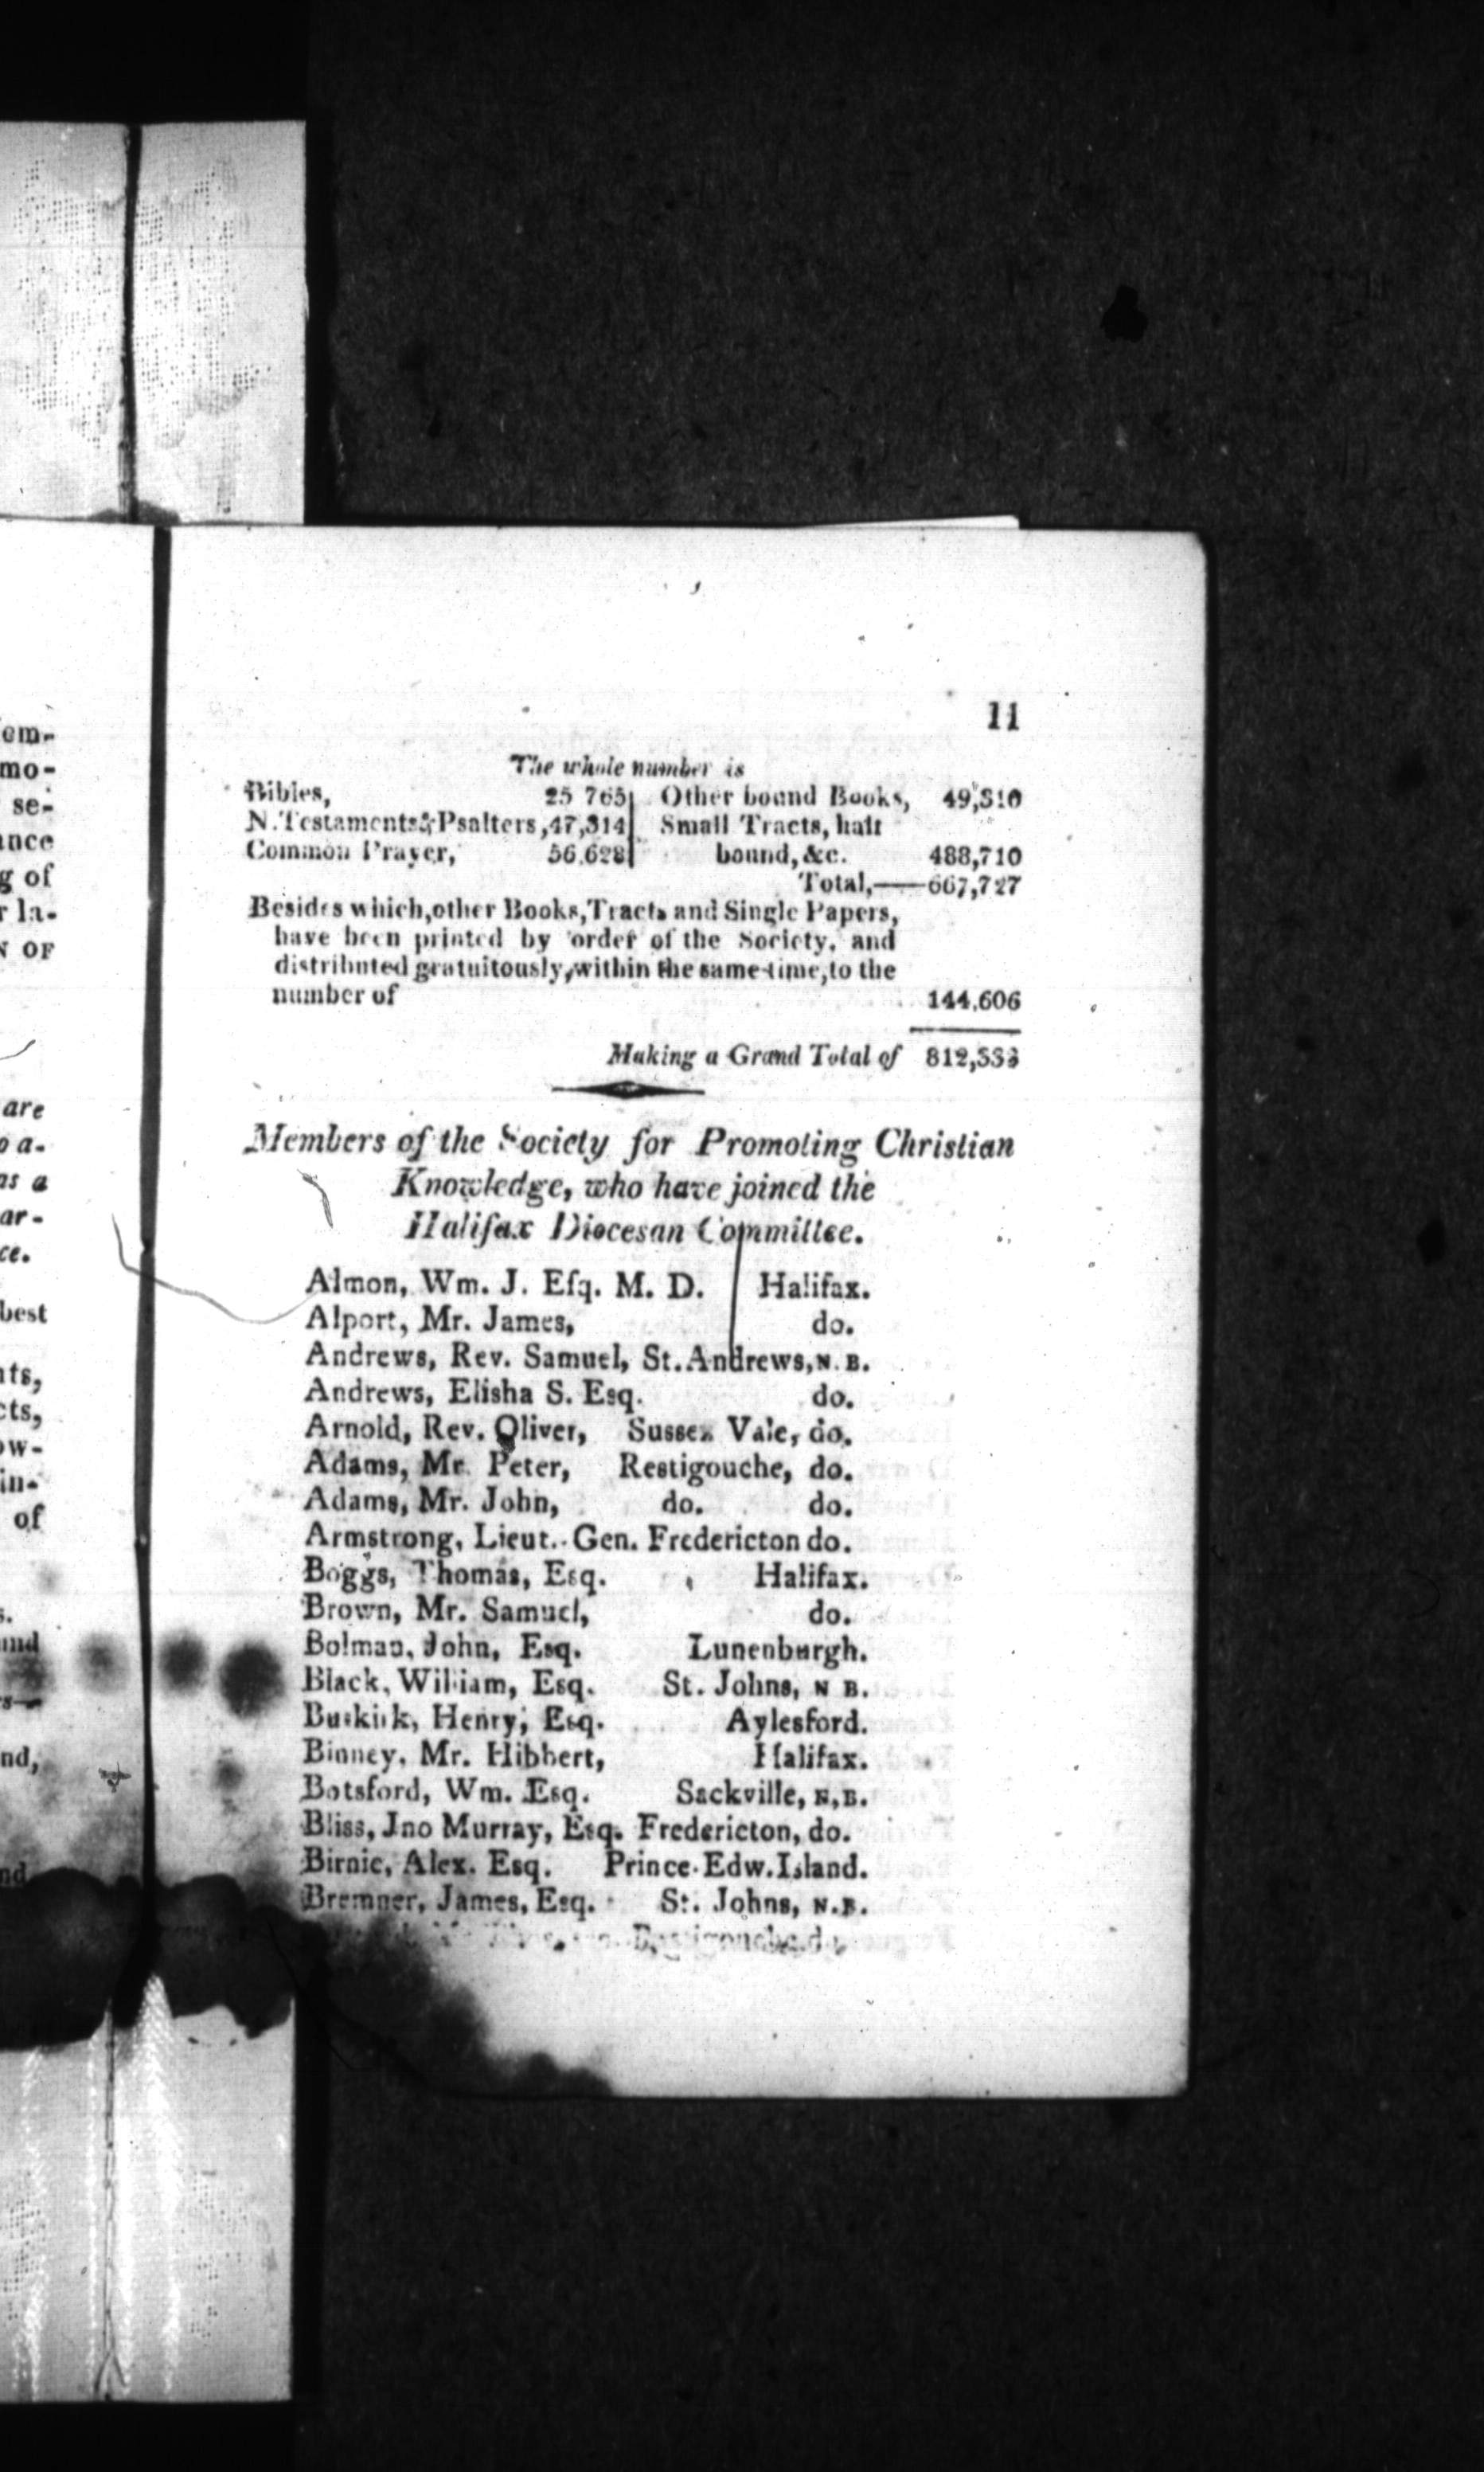 em-
mo-
se-
ance
g of
r la-
N OF
are
o a-
as a
ar-
ce.
best
nts,
cts,
ow-
in-
of
s.
and
rs—
nd,
nd
11
The whole number is
Bibles, 25 765 Other bound Books, 49,310
N. Testaments & Psalters, 47,314 Small Tracts, half
Common Prayer, 56.628 bound, &c. 488,710
Total,——667,727
Besides which, other Books, Tracts and Single Papers,
have been printed by order of the Society, and
distributed gratuitously, within the same time, to the
number of 144,606
Making a Grand Total of 812,333
Members of the Society for Promoting Christian
Knowledge, who have joined the
Halifax Diocesan Committee.
Almon, Wm. J. Esq. M. D. Halifax.
Alport, Mr. James, do.
Andrews, Rev. Samuel, St. Andrews, N. B.
Andrews, Elisha S. Esq. do.
Arnold, Rev. Oliver, Sussex Vale, do.
Adams, Mr. Peter, Restigouche, do.
Adams, Mr. John, do. do.
Armstrong, Lieut. Gen. Fredericton do.
Boggs, Thomas, Esq. Halifax.
Brown, Mr. Samuel, do.
Bolman, John, Esq. Lunenburgh.
Black, William, Esq. St. Johns, N B.
Buskirk, Henry, Esq. Aylesford.
Binney, Mr. Hibbert, Halifax.
Botsford, Wm. Esq. Sackville, N.B.
Bliss, Jno Murray, Esq. Fredericton, do.
Birnie, Alex. Esq. Prince Edw. Island.
Bremner, James, Esq. St. Johns, N.B.
Restigouche, do.